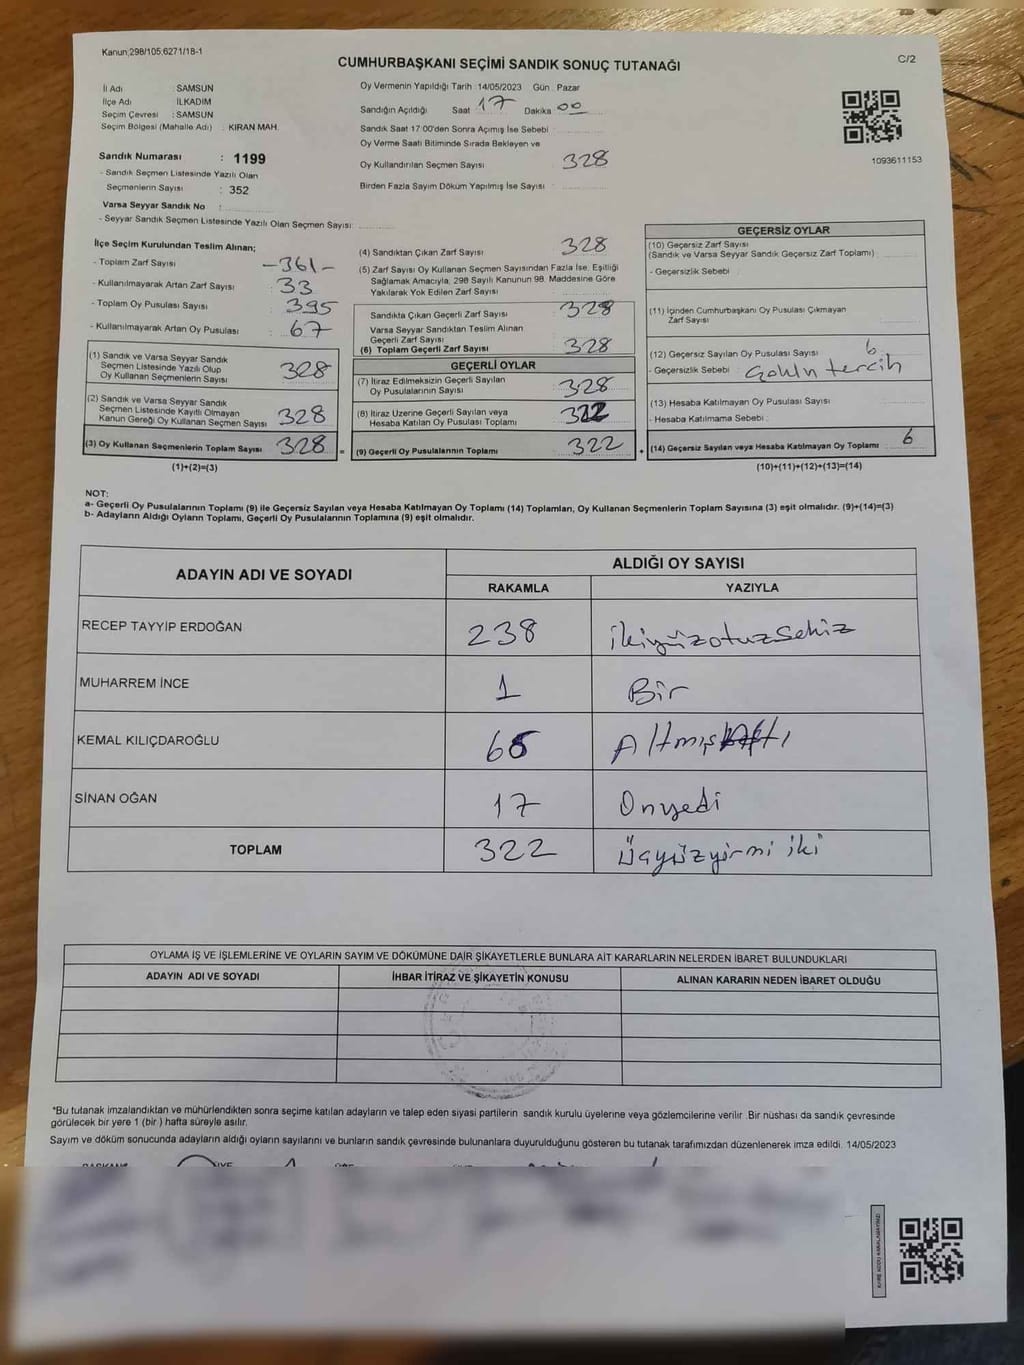 Kanun;298/105;6271/18-1
C/2
CUMHURBAŞKANI SEÇİMİ SANDIK SONUÇ TUTANAĞI
İl Adı : SAMSUN
İlçe Adı : İLKADIM
Seçim Çevresi : SAMSUN
Seçim Bölgesi (Mahalle Adı) : KIRAN MAH.
Sandık Numarası : 1199
- Sandık Seçmen Listesinde Yazılı Olan
Seçmenlerin Sayısı : 352
Varsa Seyyar Sandık No :
- Seyyar Sandık Seçmen Listesinde Yazılı Olan Seçmen Sayısı:
Oy Vermenin Yapıldığı Tarih :14/05/2023 Gün : Pazar
Sandığın Açıldığı Saat 17 Dakika 00
Sandık Saat 17:00'den Sonra Açılmış İse Sebebi
Oy Verme Saati Bitiminde Sırada Bekleyen ve
Oy Kullandırılan Seçmen Sayısı : 328
Birden Fazla Sayım Döküm Yapılmış İse Sayısı :
1093611153
İlçe Seçim Kurulundan Teslim Alınan;
- Toplam Zarf Sayısı : -361-
- Kullanılmayarak Artan Zarf Sayısı : 33
- Toplam Oy Pusulası Sayısı : 395
- Kullanılmayarak Artan Oy Pusulası : 67
(1) Sandık ve Varsa Seyyar Sandık
Seçmen Listesinde Yazılı Olup
Oy Kullanan Seçmenlerin Sayısı : 328
(2) Sandık ve Varsa Seyyar Sandık
Seçmen Listesinde Kayıtlı Olmayan
Kanun Gereği Oy Kullanan Seçmen Sayısı : 328
(3) Oy Kullanan Seçmenlerin Toplam Sayısı : 328
(1)+(2)=(3)
(4) Sandıktan Çıkan Zarf Sayısı : 328
(5) Zarf Sayısı Oy Kullanan Seçmen Sayısından Fazla İse, Eşitliği
Sağlamak Amacıyla, 298 Sayılı Kanunun 98. Maddesine Göre
Yakılarak Yok Edilen Zarf Sayısı :
Sandıkta Çıkan Geçerli Zarf Sayısı : 328
Varsa Seyyar Sandıktan Teslim Alınan
Geçerli Zarf Sayısı :
(6) Toplam Geçerli Zarf Sayısı : 328
GEÇERLİ OYLAR
(7) İtiraz Edilmeksizin Geçerli Sayılan
Oy Pusulalarının Sayısı : 328
(8) İtiraz Üzerine Geçerli Sayılan veya
Hesaba Katılan Oy Pusulası Toplamı : 322
= (9) Geçerli Oy Pusulalarının Toplamı : 322
GEÇERSİZ OYLAR
(10) Geçersiz Zarf Sayısı
(Sandık ve Varsa Seyyar Sandık Geçersiz Zarf Toplamı)
- Geçersizlik Sebebi
(11) İçinden Cumhurbaşkanı Oy Pusulası Çıkmayan
Zarf Sayısı
(12) Geçersiz Sayılan Oy Pusulası Sayısı : 6
- Geçersizlik Sebebi : Çoklu tercih
(13) Hesaba Katılmayan Oy Pusulası Sayısı :
- Hesaba Katılmama Sebebi :
+ (14) Geçersiz Sayılan veya Hesaba Katılmayan Oy Toplamı : 6
(10)+(11)+(12)+(13)=(14)
NOT:
a- Geçerli Oy Pusulalarının Toplamı (9) ile Geçersiz Sayılan veya Hesaba Katılmayan Oy Toplamı (14) Toplamları, Oy Kullanan Seçmenlerin Toplam Sayısına (3) eşit olmalıdır. (9)+(14)=(3)
b- Adayların Aldığı Oyların Toplamı, Geçerli Oy Pusulalarının Toplamına (9) eşit olmalıdır.
ADAYIN ADI VE SOYADI
ALDIĞI OY SAYISI
RAKAMLA YAZIYLA
RECEP TAYYİP ERDOĞAN 238 ikiyüzotuzsekiz
MUHARREM İNCE 1 Bir
KEMAL KILIÇDAROĞLU 66 Altmış
SİNAN OĞAN 17 Onyedi
TOPLAM 322 Üçyüzyirmi iki
OYLAMA İŞ VE İŞLEMLERİNE VE OYLARIN SAYIM VE DÖKÜMÜNE DAİR ŞİKAYETLERLE BUNLARA AİT KARARLARIN NELERDEN İBARET BULUNDUKLARI
ADAYIN ADI VE SOYADI İHBAR İTİRAZ VE ŞİKAYETİN KONUSU ALINAN KARARIN NEDEN İBARET OLDUĞU
*Bu tutanak imzalandıktan ve mühürlendikten sonra seçime katılan adayların ve talep eden siyasi partilerin sandık kurulu üyelerine veya gözlemcilerine verilir. Bir nüshası da sandık çevresinde
görülecek bir yere 1 (bir) hafta süreyle asılır.
Sayım ve döküm sonucunda adayların aldığı oyların sayılarını ve bunların sandık çevresinde bulunanlara duyurulduğunu gösteren bu tutanak tarafımızdan düzenlenerek imza edildi. 14/05/2023